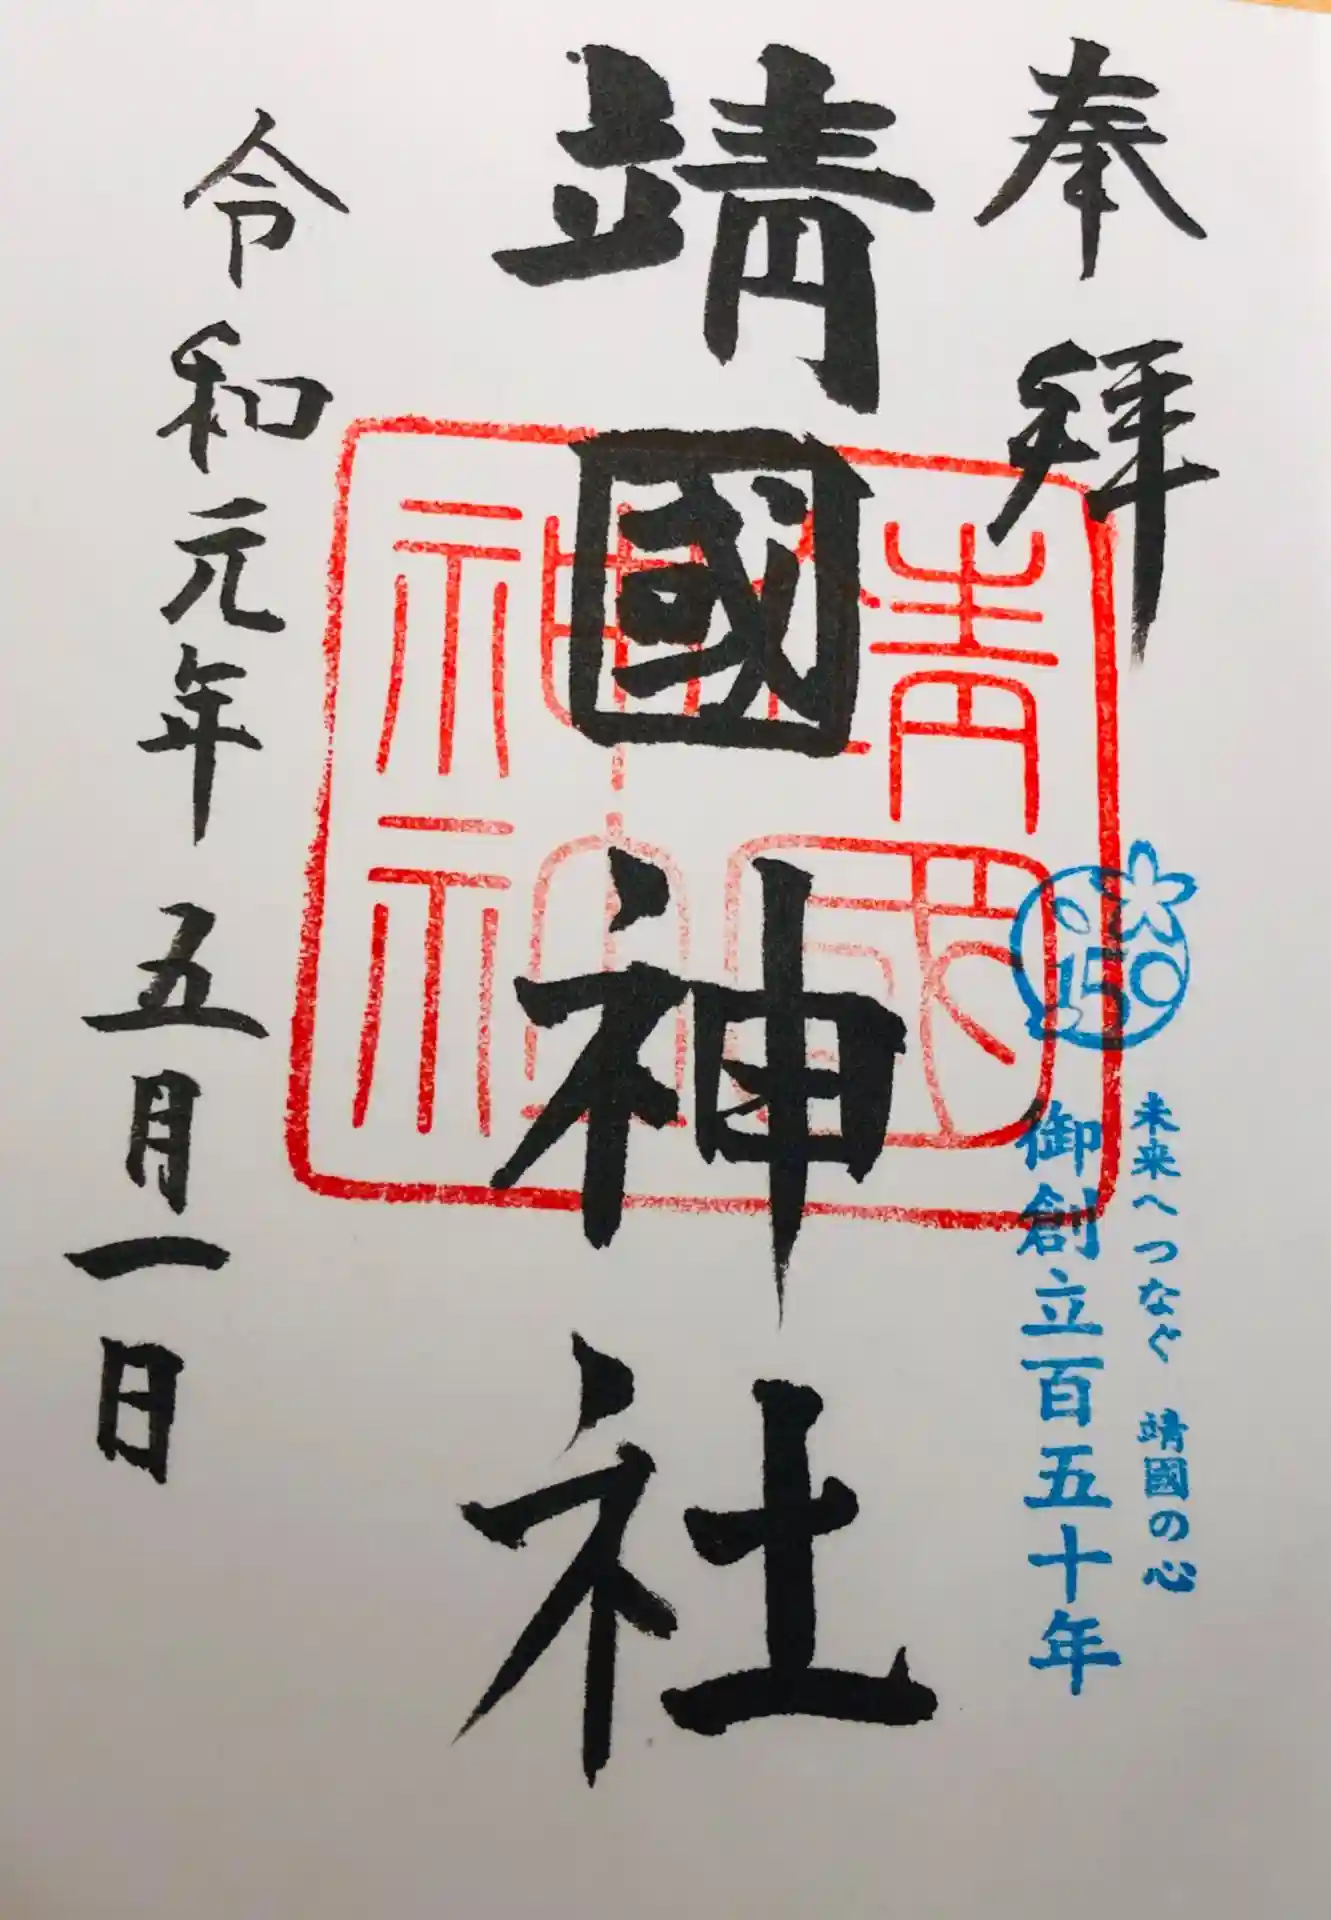 奉拝
150
未来へつなぐ 靖國の心
御創立百五十年
靖國神社
靖国神社
令和元年五月一日